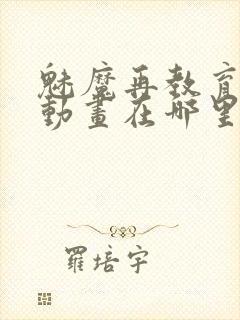 魅魔再教育
動畫在哪里
羅培宇